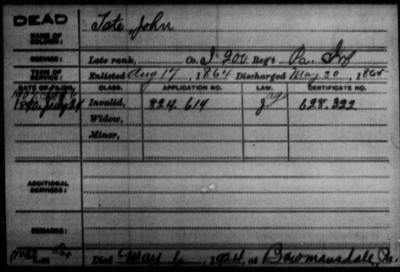 DEAD
NAME OF SOLDIER: Tate John
SERVICE: Late rank, Co. I 200 Reg't Pa. Inf
TERM OF SERVICE: Enlisted Aug 17, 1864 Discharged May 30, 1865
DATE OF FILING. CLASS. APPLICATION NO. LAW. CERTIFICATE NO.
1890, Invalid, 824.614 628.322
Widow,
Minor,
ADDITIONAL SERVICES:
REMARKS:
Died May 6, 1924, at Bowmansdale, Pa.